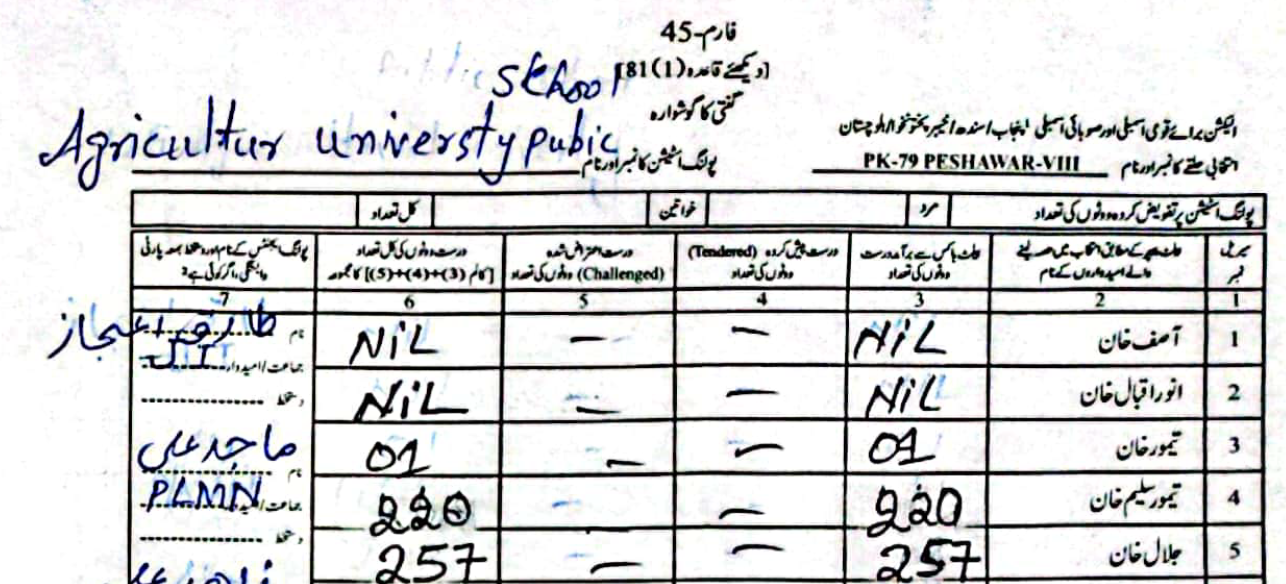 فارم-45
[دیکھئے قاعدہ (1)81]
School
گنتی کا گوشوارہ
Agricultur universty pubic
الیکشن برائے قومی اسمبلی اور صوبائی اسمبلی پنجاب/سندھ/خیبر پختونخوا/بلوچستان
انتخابی حلقے کا نمبر اور نام PK-79 PESHAWAR-VIII پولنگ اسٹیشن کا نمبر اور نام
پولنگ اسٹیشن پر تفویض کردہ ووٹوں کی تعداد مرد خواتین کل تعداد
سیریل نمبر
والے امیدواروں کے نام
ووٹوں کی تعداد
درست پیش کردہ (Tendered) ووٹوں کی تعداد
درست اعتراض شدہ (Challenged) ووٹوں کی تعداد
درست ووٹوں کی کل تعداد [کالم (3)+(4)+(5)] کا مجموعہ
1 2 3 4 5 6 7
1 آصف خان NIL — — NIL نام طارق اعجاز
جماعت/امیدوار JI
2 انور اقبال خان NIL — — NIL دستخط
3 تیمور خان 01 — — 01 نام ماجد علی
4 تیمور سلیم خان 220 — — 220 PLMN
دستخط
5 جلال خان 257 — — 257